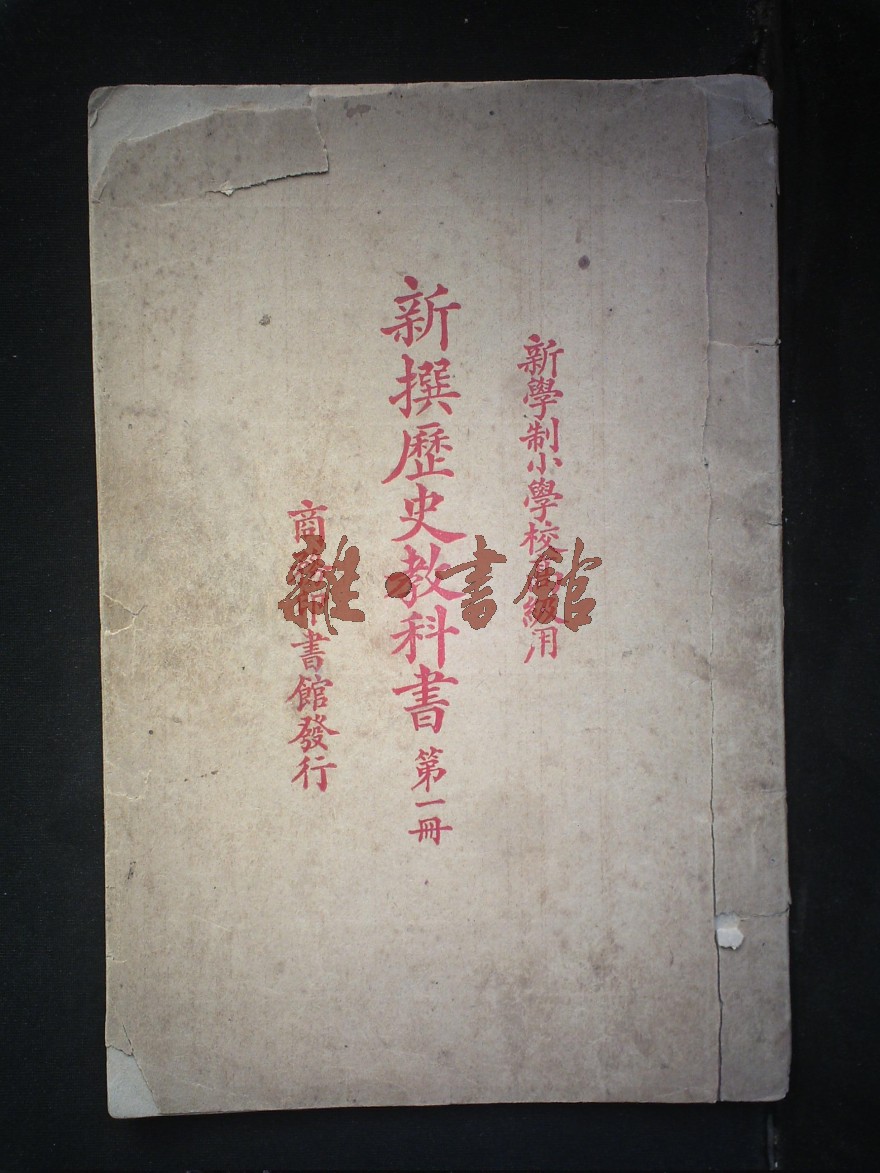 新學制小學校高級用
新撰歷史教科書 第一冊
商務印書館發行
雜·書館